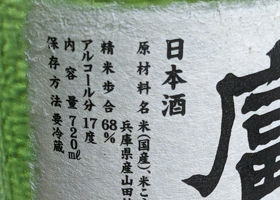 日本酒
原材料名 米(国産)、米こ
兵庫県産山田
精米歩合 68%
アルコール分 17度
内容量 720ml
保存方法 要冷蔵